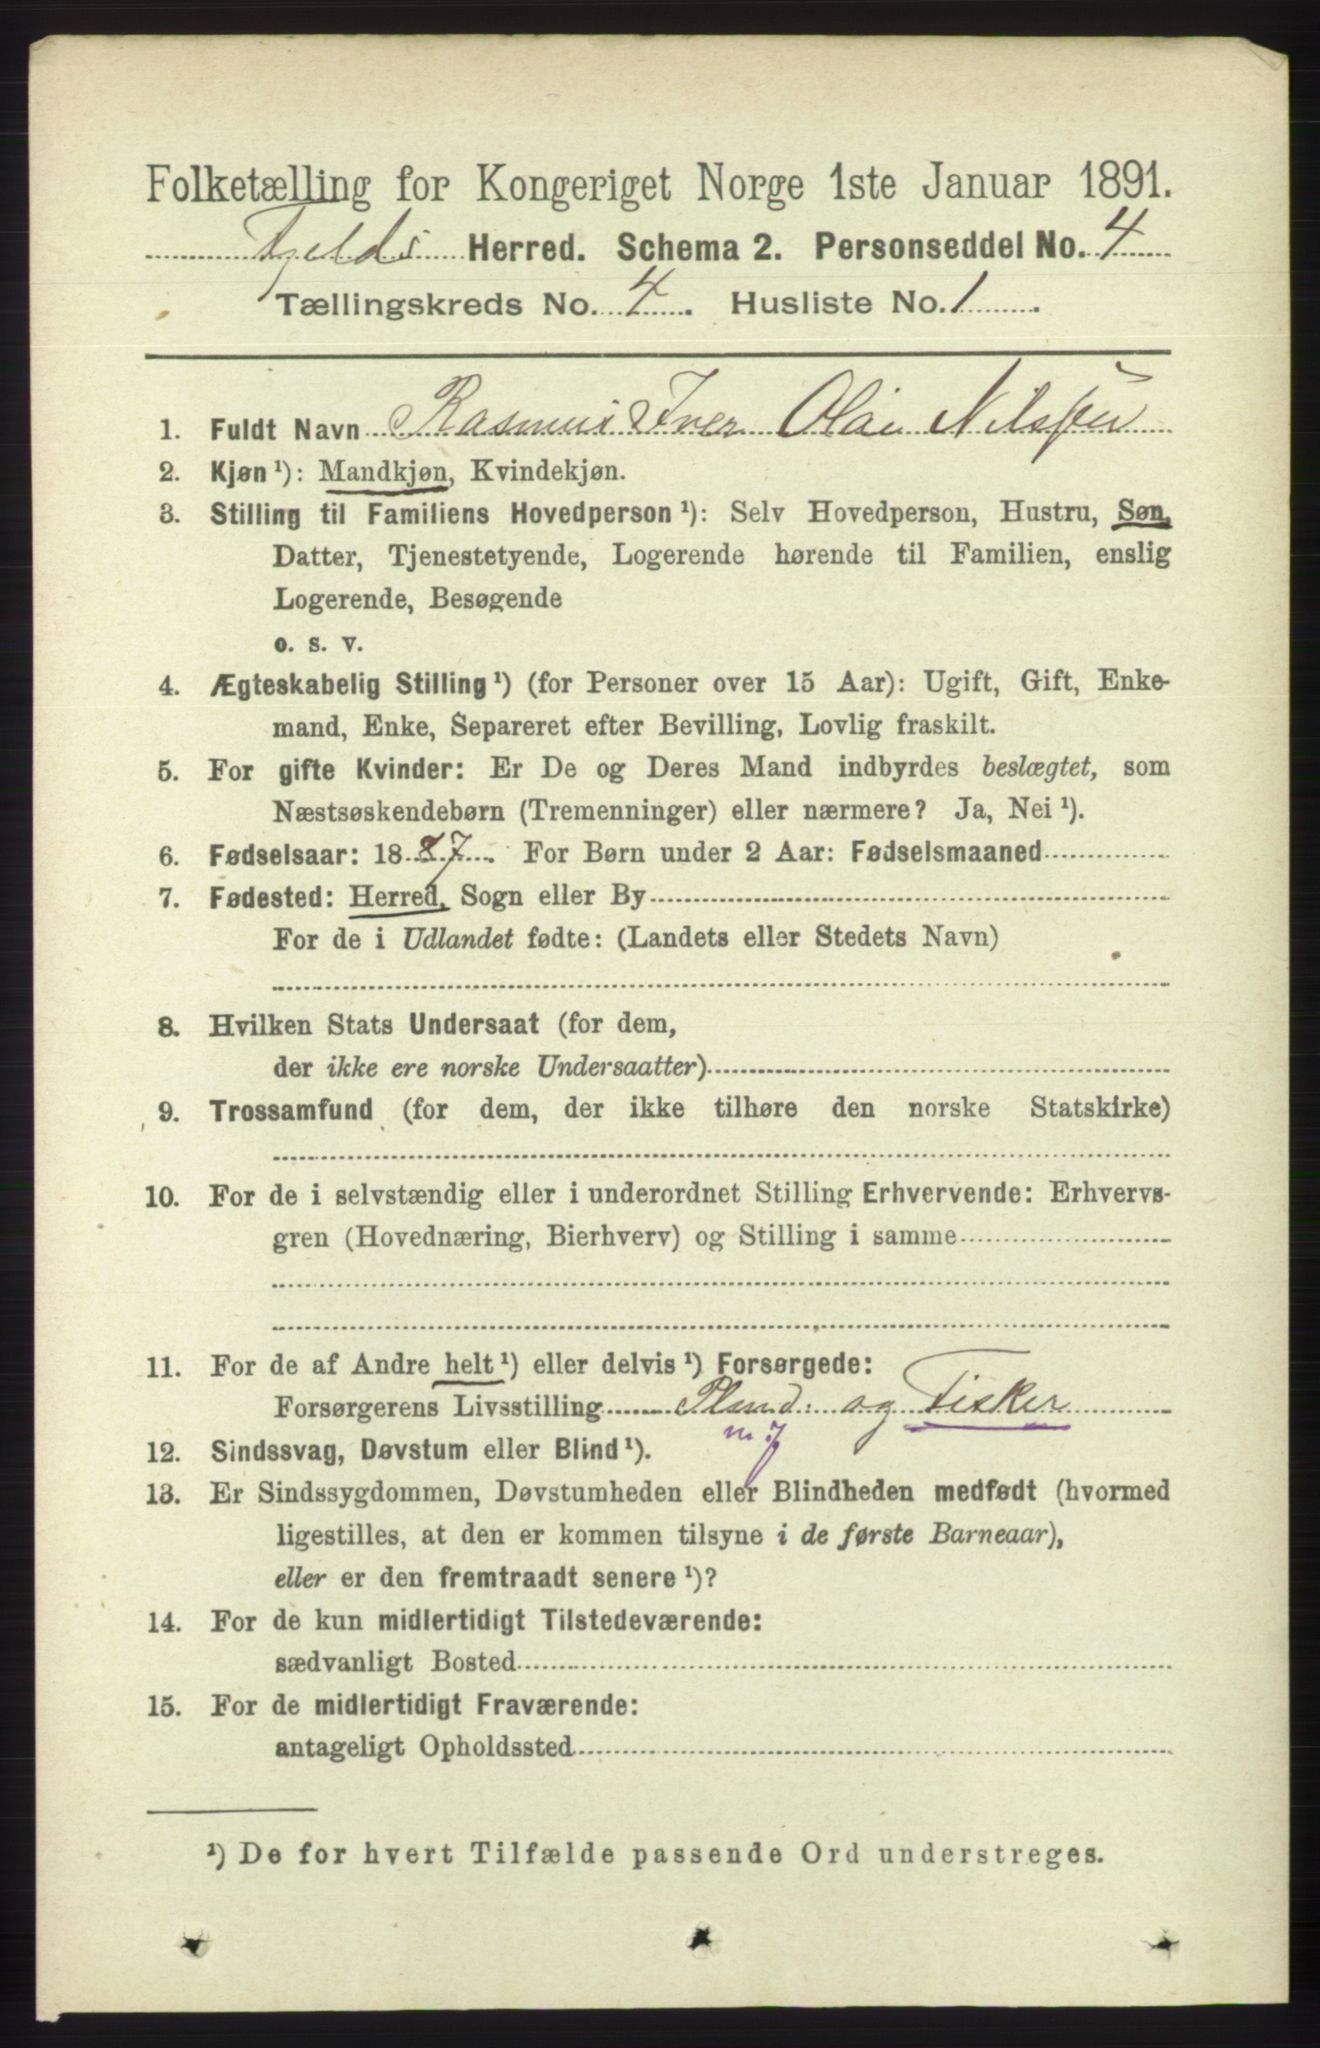 Folketælling for Kongeriget Norge 1ste Januar 1891.
Fjelds Herred. Schema 2. Personseddel No. 4
Tællingskreds No. 4. Husliste No. 1.
1. Fuldt Navn Rasmus Iver Olai Nilssen
2. Kjøn ¹): Mandkjøn, Kvindekjøn.
3. Stilling til Familiens Hovedperson ¹): Selv Hovedperson, Hustru, Søn,
Datter, Tjenestetyende, Logerende hørende til Familien, enslig
Logerende, Besøgende
o. s. v.
4. Ægteskabelig Stilling ¹) (for Personer over 15 Aar): Ugift, Gift, Enke-
mand, Enke, Separeret efter Bevilling, Lovlig fraskilt.
5. For gifte Kvinder: Er De og Deres Mand indbyrdes beslægtet, som
Næstsøskendebørn (Tremenninger) eller nærmere? Ja, Nei ¹).
6. Fødselsaar: 1887. For Børn under 2 Aar: Fødselsmaaned
7. Fødested: Herred, Sogn eller By
For de i Udlandet fødte: (Landets eller Stedets Navn)
8. Hvilken Stats Undersaat (for dem,
der ikke ere norske Undersaatter)
9. Trossamfund (for dem, der ikke tilhøre den norske Statskirke)
10. For de i selvstændig eller i underordnet Stilling Erhvervende: Erhvervs-
gren (Hovednæring, Bierhverv) og Stilling i samme
11. For de af Andre helt ¹) eller delvis ¹) Forsørgede:
Forsørgerens Livsstilling og Fisker
12. Sindssvag, Døvstum eller Blind ¹).
13. Er Sindssygdommen, Døvstumheden eller Blindheden medfødt (hvormed
ligestilles, at den er kommen tilsyne i de første Barneaar),
eller er den fremtraadt senere ¹)?
14. For de kun midlertidigt Tilstedeværende:
sædvanligt Bosted
15. For de midlertidigt Fraværende:
antageligt Opholdssted
¹) De for hvert Tilfælde passende Ord understreges.